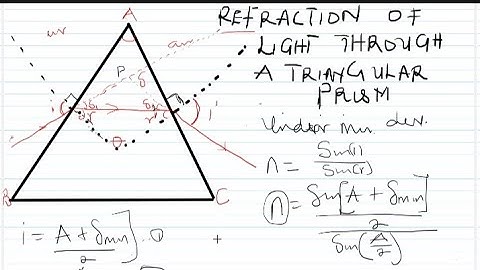 REFRACTION OF
LIGHT THROUGH
A TRIANGULAR
PRISM
Under min. dev.
n = Sin(i)
Sin(r)
n = Sin[A + δmin]
2
Sin(A/2)
A
P
δ
i
i'
r
r'
θ
B
C
i = A + δmin] . ①
2
+